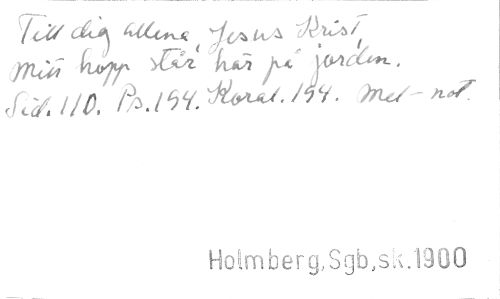 Till dig allena, Jesus Krist,
mitt hopp står här på jorden.
Sid. 110. Ps. 194. Koral. 194. Mel-not.
Holmberg, Sgb, sk. 1900